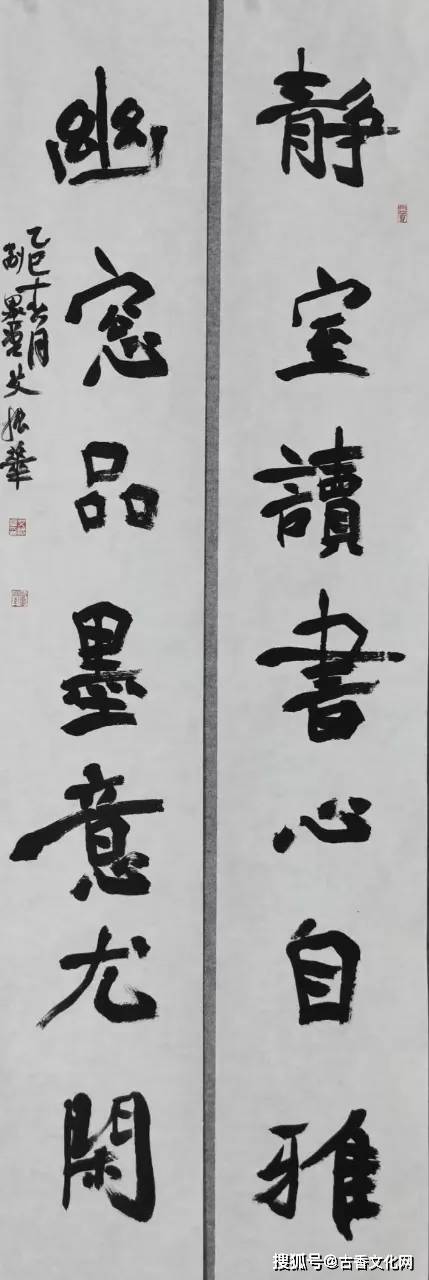 靜室讀書心自雅
幽窓品墨意尤閑
乙巳十二月
墨堂艾振華
搜狐号@古香文化网